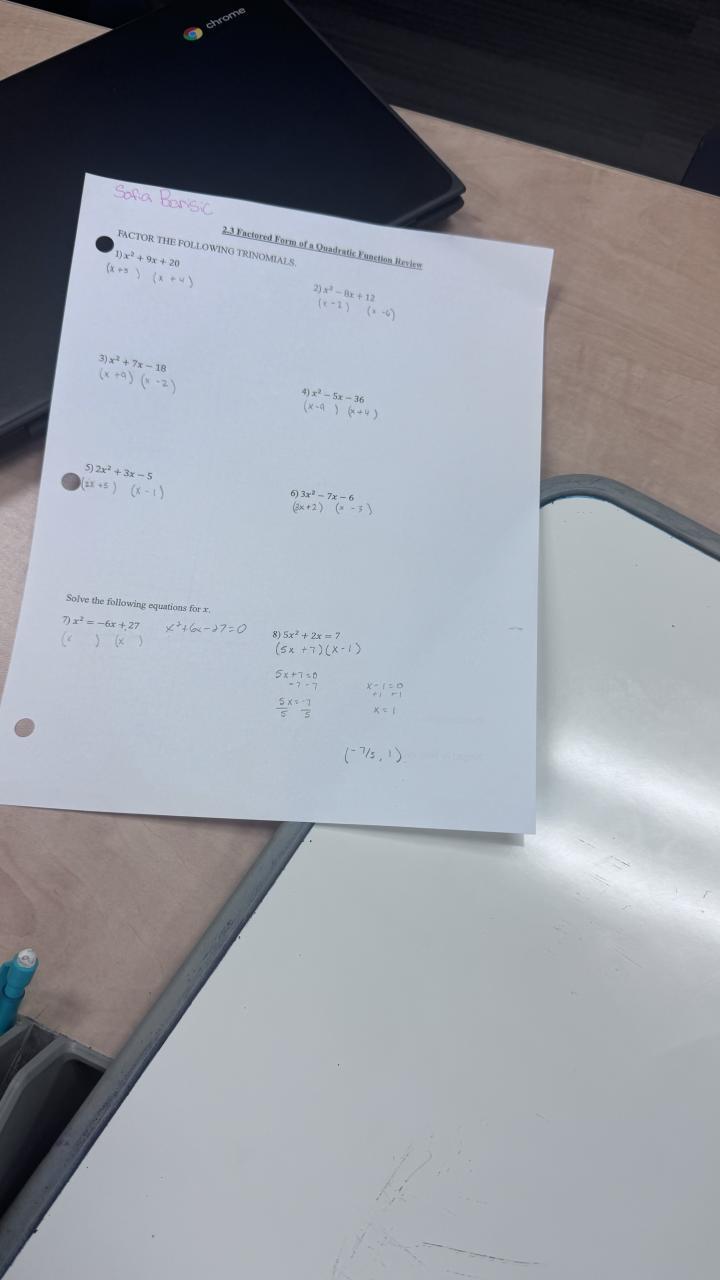 chrome
Sofia Barisic
2.3 Factored Form of a Quadratic Function Review
FACTOR THE FOLLOWING TRINOMIALS.
1) x² + 9x + 20
(x+5 ) (x + 4)
2) x² − 8x + 12
(x-2) (x -6)
3) x² + 7x − 18
(x +9) (x -2)
4) x² − 5x − 36
(x-9 ) (x+4)
5) 2x² + 3x − 5
(2x +5) (x -1)
6) 3x² − 7x − 6
(3x+2) (x -3)
Solve the following equations for x.
7) x² = −6x + 27 x²+6x-27=0
(x ) (x )
8) 5x² + 2x = 7
(5x +7)(x-1)
5x+7=0
-7 -7
5x=-7
5 5
x-1=0
+1 +1
x=1
(-7/5, 1)